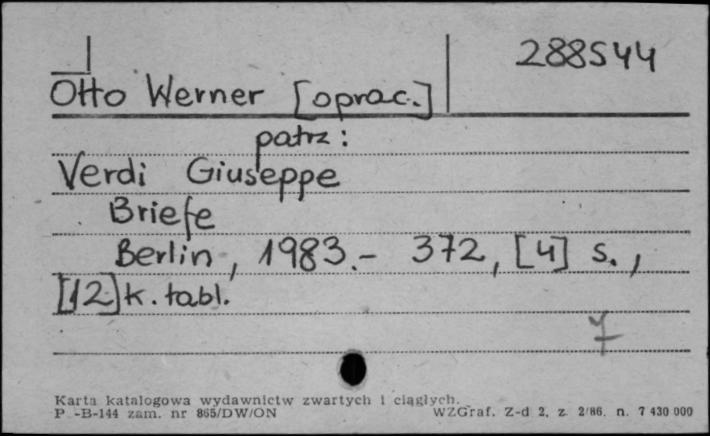 288544
Otto Werner [oprac.]
patrz:
Verdi Giuseppe
Briefe
Berlin, 1983.- 372, [4] s.,
[12] k. tabl.
7
Karta katalogowa wydawnictw zwartych i ciągłych.
P -B-144 zam. nr 865/DW/ON WZGraf. Z-d 2, z. 2/86. n. 7 430 000